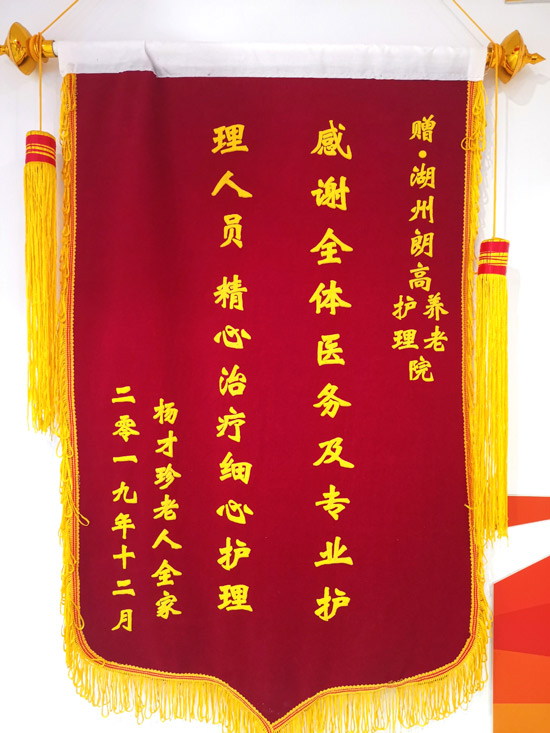 赠·湖州朗高养老护理院
感谢全体医务及专业护
理人员 精心治疗细心护理
杨才珍老人全家
二零一九年十二月